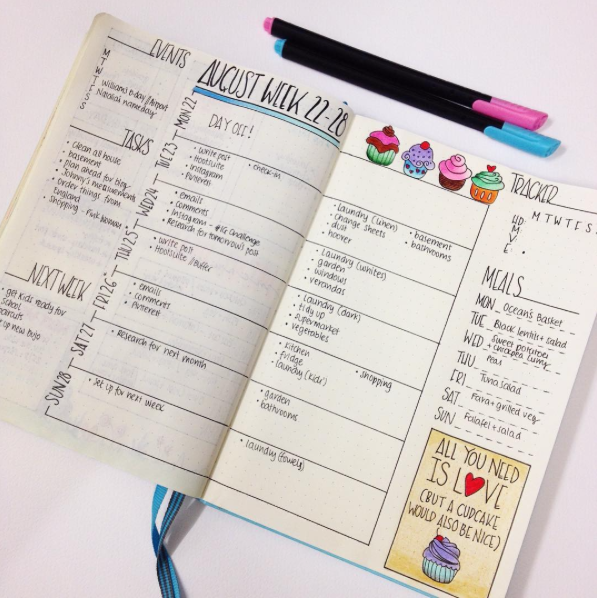 EVENTS
M
T
W
T
F
S
S
William's b-day // Airport
Natalia's nameday
TASKS
• Clean all house
basement
• plan ahead for blog
• Johnny's measurements
• order things from
England
• shopping -
NEXT WEEK
• get kids ready for
school
set up new bujo
AUGUST WEEK 22-28
MON 22
DAY OFF!
TUE 23
• write post
• Hootsuite
• Instagram
• Pinterest
• check-in
WED 24
• emails
• comments
• Instagram - #IG Challenge
• Research for tomorrow's post
THU 25
• write post
• Hootsuite / Buffer
FRI 26
• emails
• comments
• Pinterest
SAT 27
• Research for next month
SUN 28
• set up for next week
• laundry (linen)
• change sheets
• dust
• hoover
• basement
• bathrooms
• laundry (whites)
• garden
• windows
• verandas
• laundry (dark)
• tidy up
• supermarket
• vegetables
• kitchen
• fridge
• laundry (kids)
• shopping
• garden
• bathrooms
• laundry (towels)
TRACKER
M T W T F S S
M
V
E
MEALS
MON Ocean's Basket
TUE Black lentils + salad
WED Sweet potatoes
+ chickpea curry
THU Peas
FRI Tuna salad
SAT Fava + grilled veg
SUN Falafel + salad
ALL YOU NEED
IS LOVE
(BUT A CUPCAKE
WOULD ALSO BE NICE)